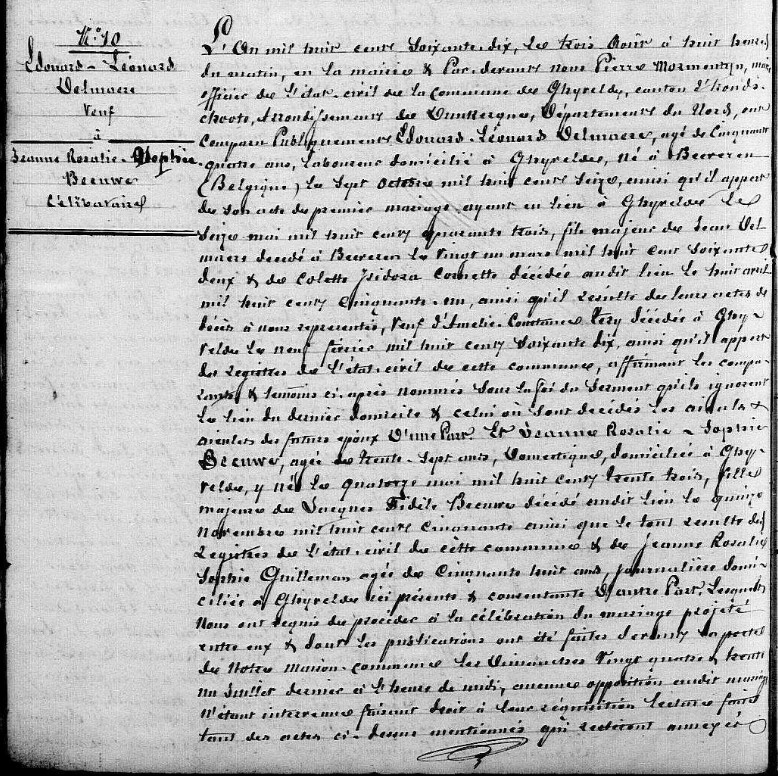 N° 10
Edouard-Léonard
Delmaere
Veuf
à
Jeanne Rosalie-Sophie
Beeuwe
Célibataire
L'An mil huit cent soixante-dix, le trois Août à huit heures
du matin, en la mairie & Par-devant nous Pierre Mormentyn, maire
officier de l'état-civil de la commune de Ghyvelde, canton d'Honds-
choote, Arrondissement de Dunkerque, Département du Nord, ont
comparu Publiquement Edouard-Léonard Delmaere, agé de Cinquante
quatre ans, Laboureur domicilié à Ghyvelde, né à Beveren
(Belgique) le sept octobre mil huit cent seize, ainsi qu'il appert
de son acte de premier mariage ayant eu lieu à Ghyvelde le
seize mai mil huit cent quarante trois, fils majeur de Jean Del-
maere décédé à Beveren le vingt un mars mil huit cent soixante
deux & de Colette Isidora Cornette décédée audit lieu le huit avril
mil huit cent cinquante-un, ainsi qu'il résulte de leurs actes de
décès à nous représentés, Veuf d'Amelie-Constance décédée à Ghy-
velde le neuf février mil huit cent soixante dix, ainsi qu'il appert
des registres de l'état-civil de cette commune, affirmant les compa-
rants & témoins ci-après nommés sous la foi du serment qu'ils ignorent
le lieu du dernier domicile & celui où sont décédés les aieuls &
aieules des futurs époux D'une Part. Et Jeanne Rosalie-Sophie
Beeuwe, agée de trente-sept ans, Domestique, domiciliée à Ghy-
velde, y née le quatorze mai mil huit cent trente trois, fille
majeure de Jacques Fidèle Beeuwe décédé audit lieu le quinze
novembre mil huit cent cinquante ainsi que le tout résulte des
registres de l'état-civil de cette commune & de Jeanne Rosalie
Sophie Guilleman agée de Cinquante huit ans, journalière domi-
ciliée à Ghyvelde ici présente & consentante D'autre Part. Lesquels
Nous ont requis de procéder à la célébration du mariage projeté
entre eux & dont les publications ont été faites devant la porte
de Notre maison-commune les Dimanches vingt quatre & trente
un Juillet dernier à l'heure de midi, aucune opposition audit mariage
n'étant intervenue faisant droit à leur réquisition lecture faite
tant des actes ci-dessus mentionnés qui resteront annexés